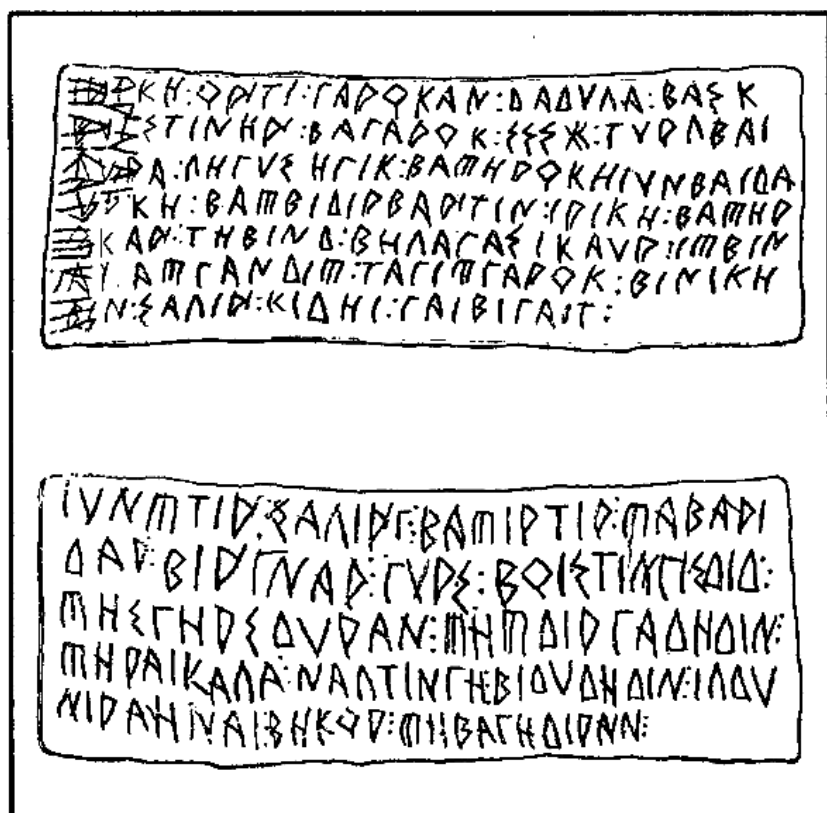 ΟΡΤΙ:ΓΑΡΟΚΑΝ:ΔΑΔΥΛΑ:ΒΑΣΚ
ΣΤΙΝΗΡ:ΒΑΓΑΡΟΚ:ΣΣΣΧ:ΤΥΡΛΒΑΙ
ΡΑ:ΛΗΓΥΣΗΓΙΚ:ΒΑͲΗΡΟΚΗΙΥΝΒΑΙΔΑ
ΚΗ:ΒΑͲΒΙΔΙΡΒΑΡΤΙΝ:ΙΡΙΚΗ:ΒΑͲΗΡ
ΚΑΡ:ΤΗΒΙΝΔ:ΒΗΛΑΓΑΣΙΚΑΥΡ:ΙͲΒΙΝ
ΑΙ:ΑͲΓΑΝΔΙͲ:ΤΑΓΙͲΓΑΡΟΚ:ΒΙΝΙΚΗ
ΒΙΝ:ΣΑΛΙΡ:ΚΙΔΗΙ:ΓΑΙΒΙΓΑΙΤ:
ΙΥΝͲΤΙΡ:ΣΑΛΙΡΓ:ΒΑͲΙΡΤΙΡ:ͲΑΒΑΡΙ
ΔΑΡ:ΒΙΡΙΝΑΡ:ΓΥΡΣ:ΒΟΙΣΤΙΝΓΙΣΔΙΔ:
ͲΗΣΓΗΡΣΔΥΡΑΝ:ͲΗͲΔΙΡΓΑΔΗΔΙΝ:
ͲΗΡΑΙΚΑΛΑ:ΝΑΛΤΙΝΓΗ:ΒΙΔΥΔΗΔΙΝ:ΙΛΔΥ
ΝΙΡΑΗΝΑΙ:ΒΗΚΟΡ:ͲΗΒΑΓΗΔΙΡΑΝ: